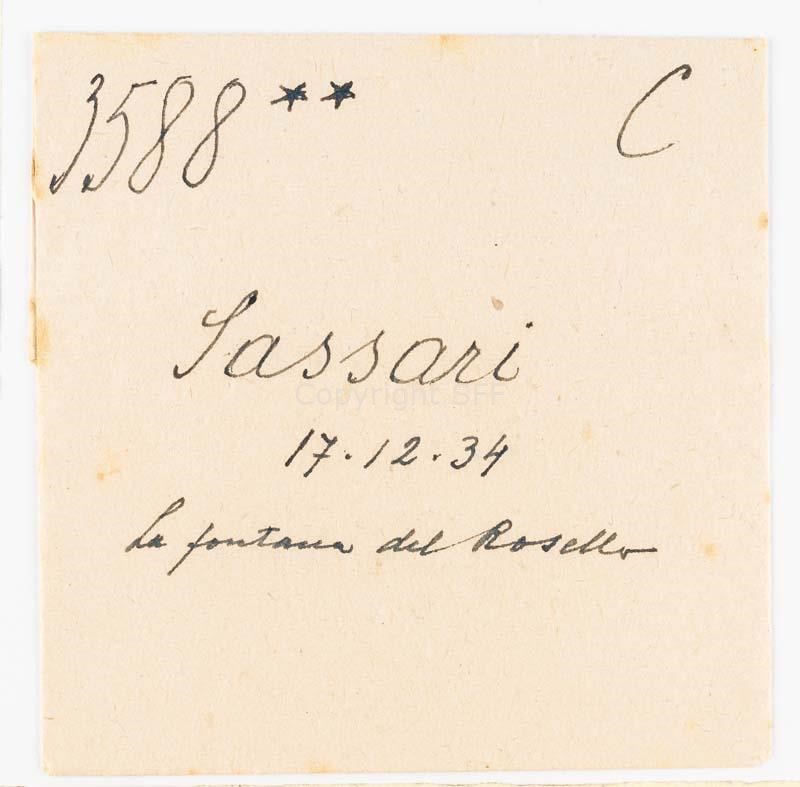 3588 ** C
Sassari
Copyright BFF
17.12.34
La fontana del Rosello